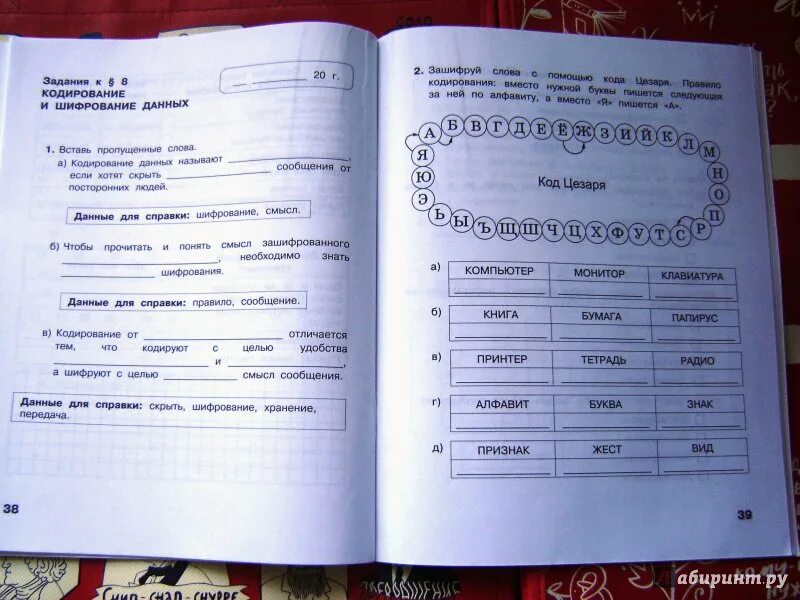 Задания к § 8
КОДИРОВАНИЕ
И ШИФРОВАНИЕ ДАННЫХ
20 г.
1. Вставь пропущенные слова.
а) Кодирование данных называют ,
если хотят скрыть сообщения от
посторонних людей.
Данные для справки: шифрование, смысл.
б) Чтобы прочитать и понять смысл зашифрованного
, необходимо знать
шифрования.
Данные для справки: правило, сообщение.
в) Кодирование от отличается
тем, что кодируют с целью удобства
и ,
а шифруют с целью смысл сообщения.
Данные для справки: скрыть, шифрование, хранение,
передача.
38
2. Зашифруй слова с помощью кода Цезаря. Правило
кодирования: вместо нужной буквы пишется следующая
за ней по алфавиту, а вместо «Я» пишется «А».
А Б В Г Д Е Ё Ж З И Й К Л М Н О П Р С Т У Ф Х Ц Ч Ш Щ Ъ Ы Ь Э Ю Я
Код Цезаря
а) КОМПЬЮТЕР МОНИТОР КЛАВИАТУРА
б) КНИГА БУМАГА ПАПИРУС
в) ПРИНТЕР ТЕТРАДЬ РАДИО
г) АЛФАВИТ БУКВА ЗНАК
д) ПРИЗНАК ЖЕСТ ВИД
39
Снип-снап-снурре
абиринт.ру